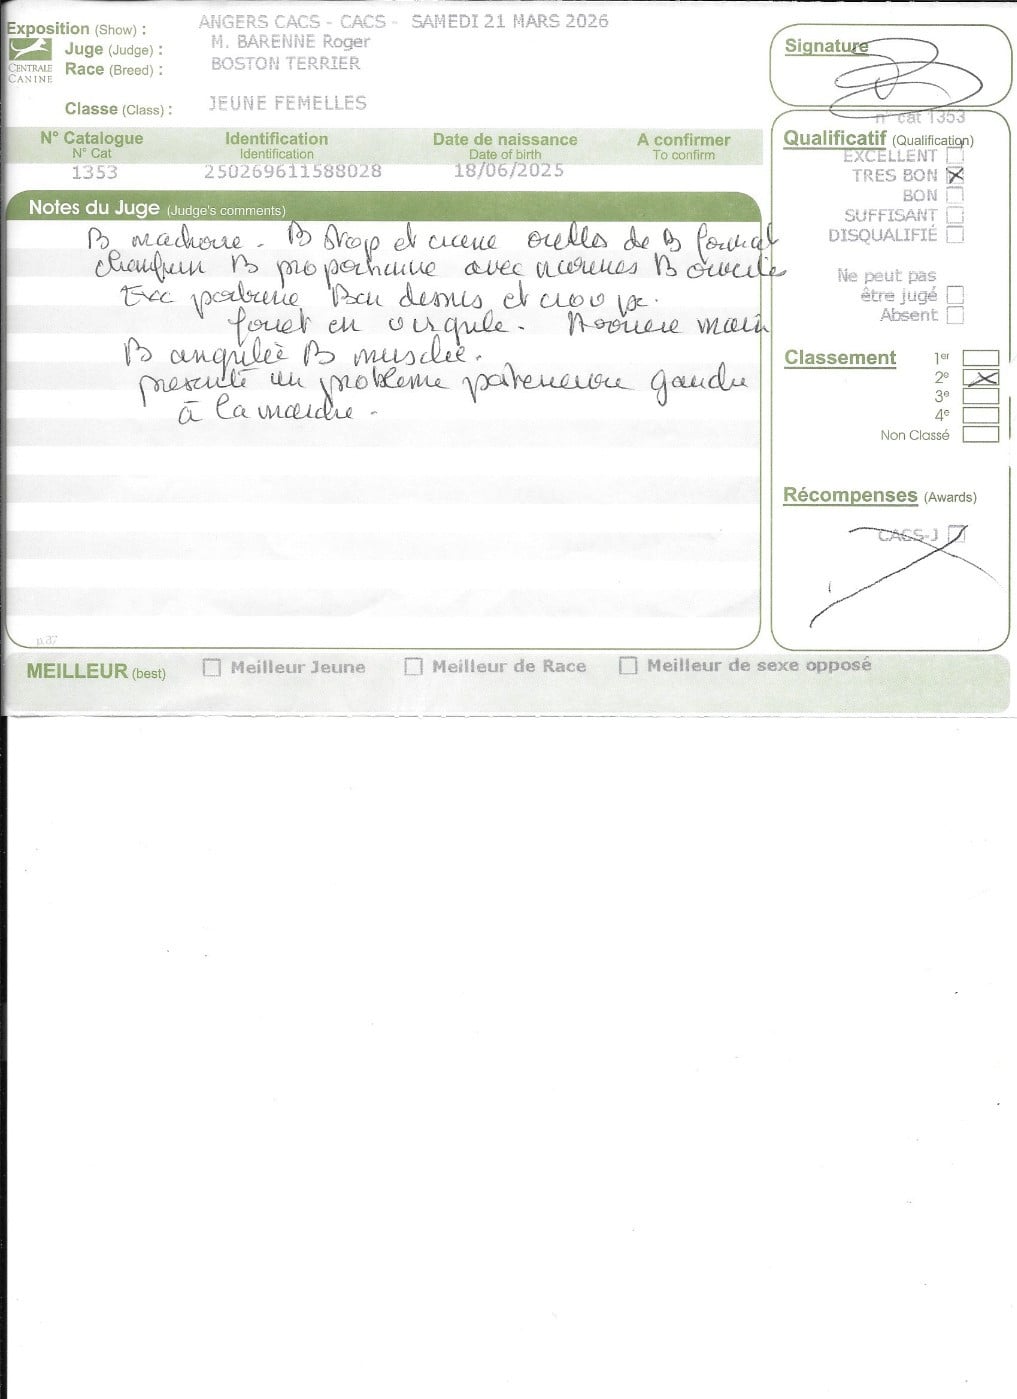 Exposition (Show) : ANGERS CACS - CACS - SAMEDI 21 MARS 2026
Juge (Judge) : M. BARENNE Roger
Race (Breed) : BOSTON TERRIER
CENTRALE
CANINE
Classe (Class) : JEUNE FEMELLES
Signature
n° cat 1353
N° Catalogue Identification Date de naissance A confirmer
N° Cat Identification Date of birth To confirm
1353 250269611588028 18/06/2025
Qualificatif (Qualification)
EXCELLENT
TRES BON
BON
SUFFISANT
DISQUALIFIÉ
Ne peut pas
être jugé
Absent
Notes du Juge (Judge's comments)
B machoire - B Stop et crane oreilles de B format
chanfrein B proportionne avec narines B ouvertes
Exc poitrine Bon dessus et croupe.
fouet en virgule - Arriere main
B angulée B musclée.
presente un probleme gauche
à la -
Classement
1er
2e
3e
4e
Non Classé
Récompenses (Awards)
CACS-J
p.37
MEILLEUR (best) Meilleur Jeune Meilleur de Race Meilleur de sexe opposé